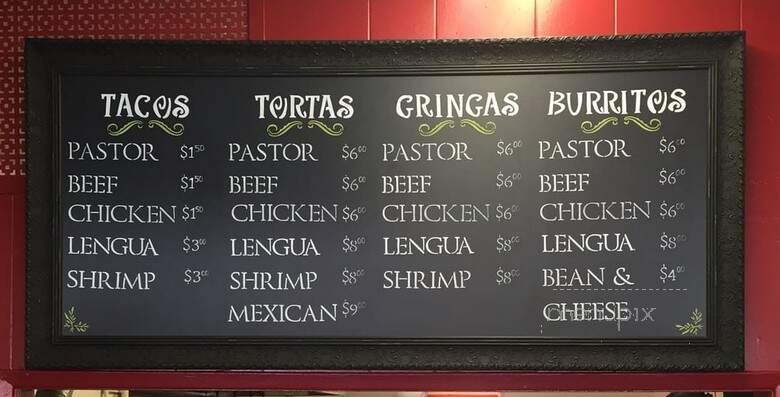 TACOS TORTAS GRINGAS BURRITOS
PASTOR $1.50 PASTOR $6.00 PASTOR $6.00 PASTOR $6.00
BEEF $1.50 BEEF $6.00 BEEF $6.00 BEEF $6.00
CHICKEN $1.50 CHICKEN $6.00 CHICKEN $6.00 CHICKEN $6.00
LENGUA $3.00 LENGUA $8.00 LENGUA $8.00 LENGUA $8.00
SHRIMP $3.00 SHRIMP $8.00 SHRIMP $8.00 BEAN & $4.00
MEXICAN $9.00 CHEESE